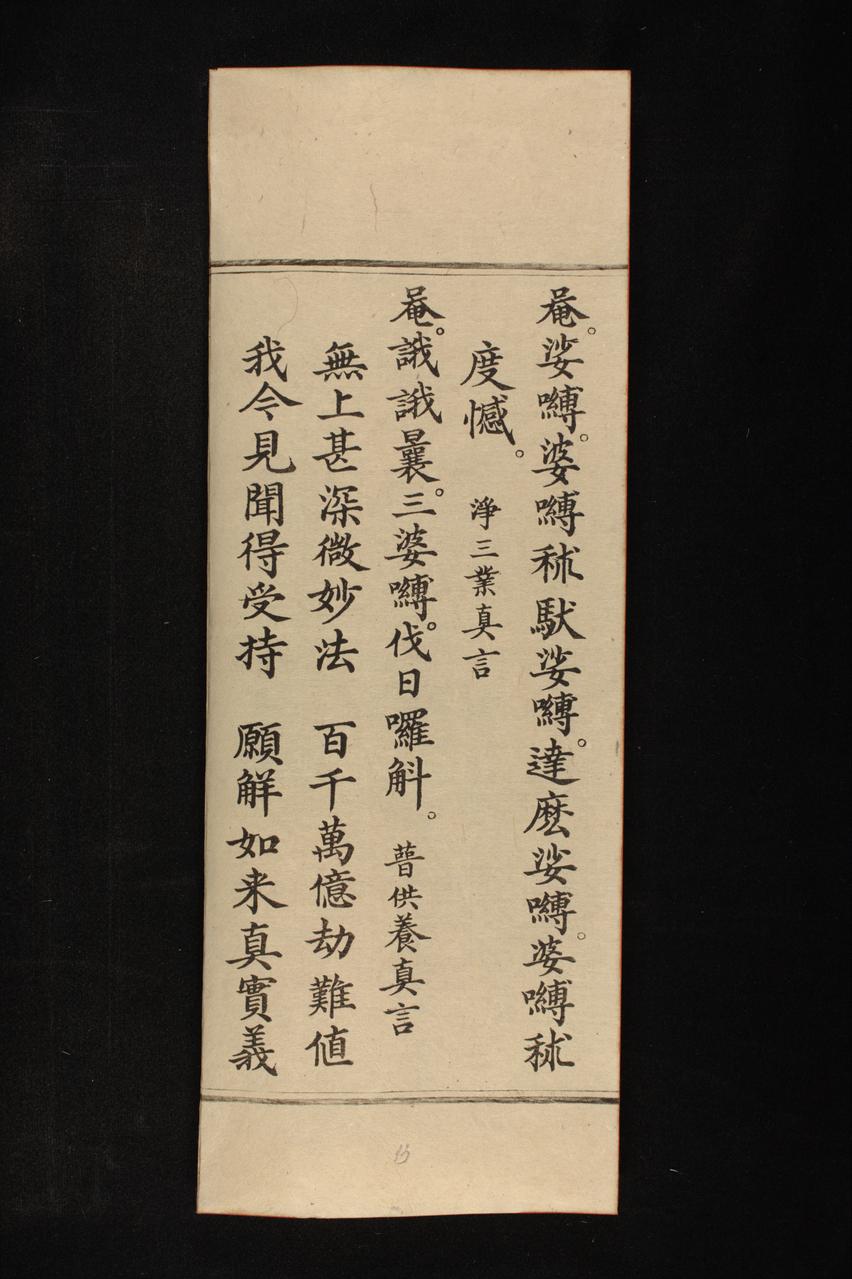 菴。娑嚩。婆嚩秫馱娑嚩。達麽娑嚩。婆嚩秫
度憾。 淨三業真言
菴。誐誐曩。三婆嚩。伐日囉斛。 普供養真言
無上甚深微妙法 百千萬億劫難值
我今見聞得受持 願解如来真實義